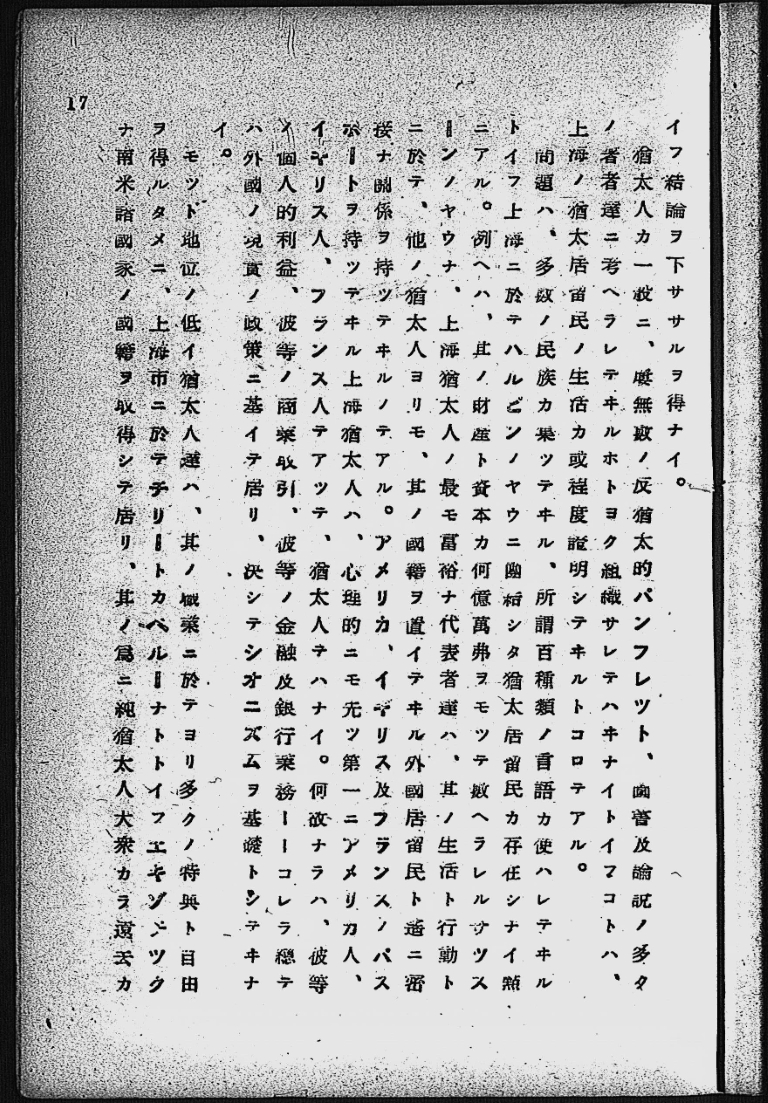 イフ結論ヲ下ササルヲ得ナイ。
猶太人カ一般ニ、無數ノ反猶太的パンフレツト、圖書及論説ノ多々
ノ著者達ニ考ヘラレテヰルホトヨク組織サレテハヰナイトイフコトハ、
上海ノ猶太居留民ノ生活カ或程度證明シテヰルトコロテアル。
問題ハ、多數ノ民族カ集ツテヰル、所謂百種類ノ言語カ使ハレテヰル
トイフ上海ニ於テハルピンノヤウニ團結シタ猶太居留民カ存在シナイ點
ニアル。例ヘハ、其ノ財産ト資本カ何億萬弗ヲモツテ數ヘラレルサツス
ーンノヤウナ、上海猶太人ノ最モ富裕ナ代表者達ハ、其ノ生活ト行動ト
ニ於テ、他ノ猶太人ヨリモ、其ノ國籍ヲ置イテヰル外國居留民ト遙ニ密
接ナ關係ヲ持ツテヰルノテアル。アメリカ、イギリス及フランスノパス
ポートヲ持ツテヰル上海猶太人ハ、心理的ニモ先ツ第一ニアメリカ人、
イギリス人、フランス人テアツテ、猶太人テハナイ。何故ナラハ、彼等
ノ個人的利益、彼等ノ商業取引、彼等ノ金融及銀行業務ーーコレラ總テ
ハ外國ノ現實ノ政策ニ基イテ居リ、決シテシオニズムヲ基礎トシテヰナ
イ。
モツト地位ノ低イ猶太人達ハ、其ノ職業ニ於テヨリ多クノ特典ト自由
ヲ得ルタメニ、上海市ニ於テチリートカベルーナトトイフエキゾーツク
ナ南米諸國家ノ國籍ヲ取得シテ居リ、其ノ爲ニ純猶太人大衆カラ遠去カ
17